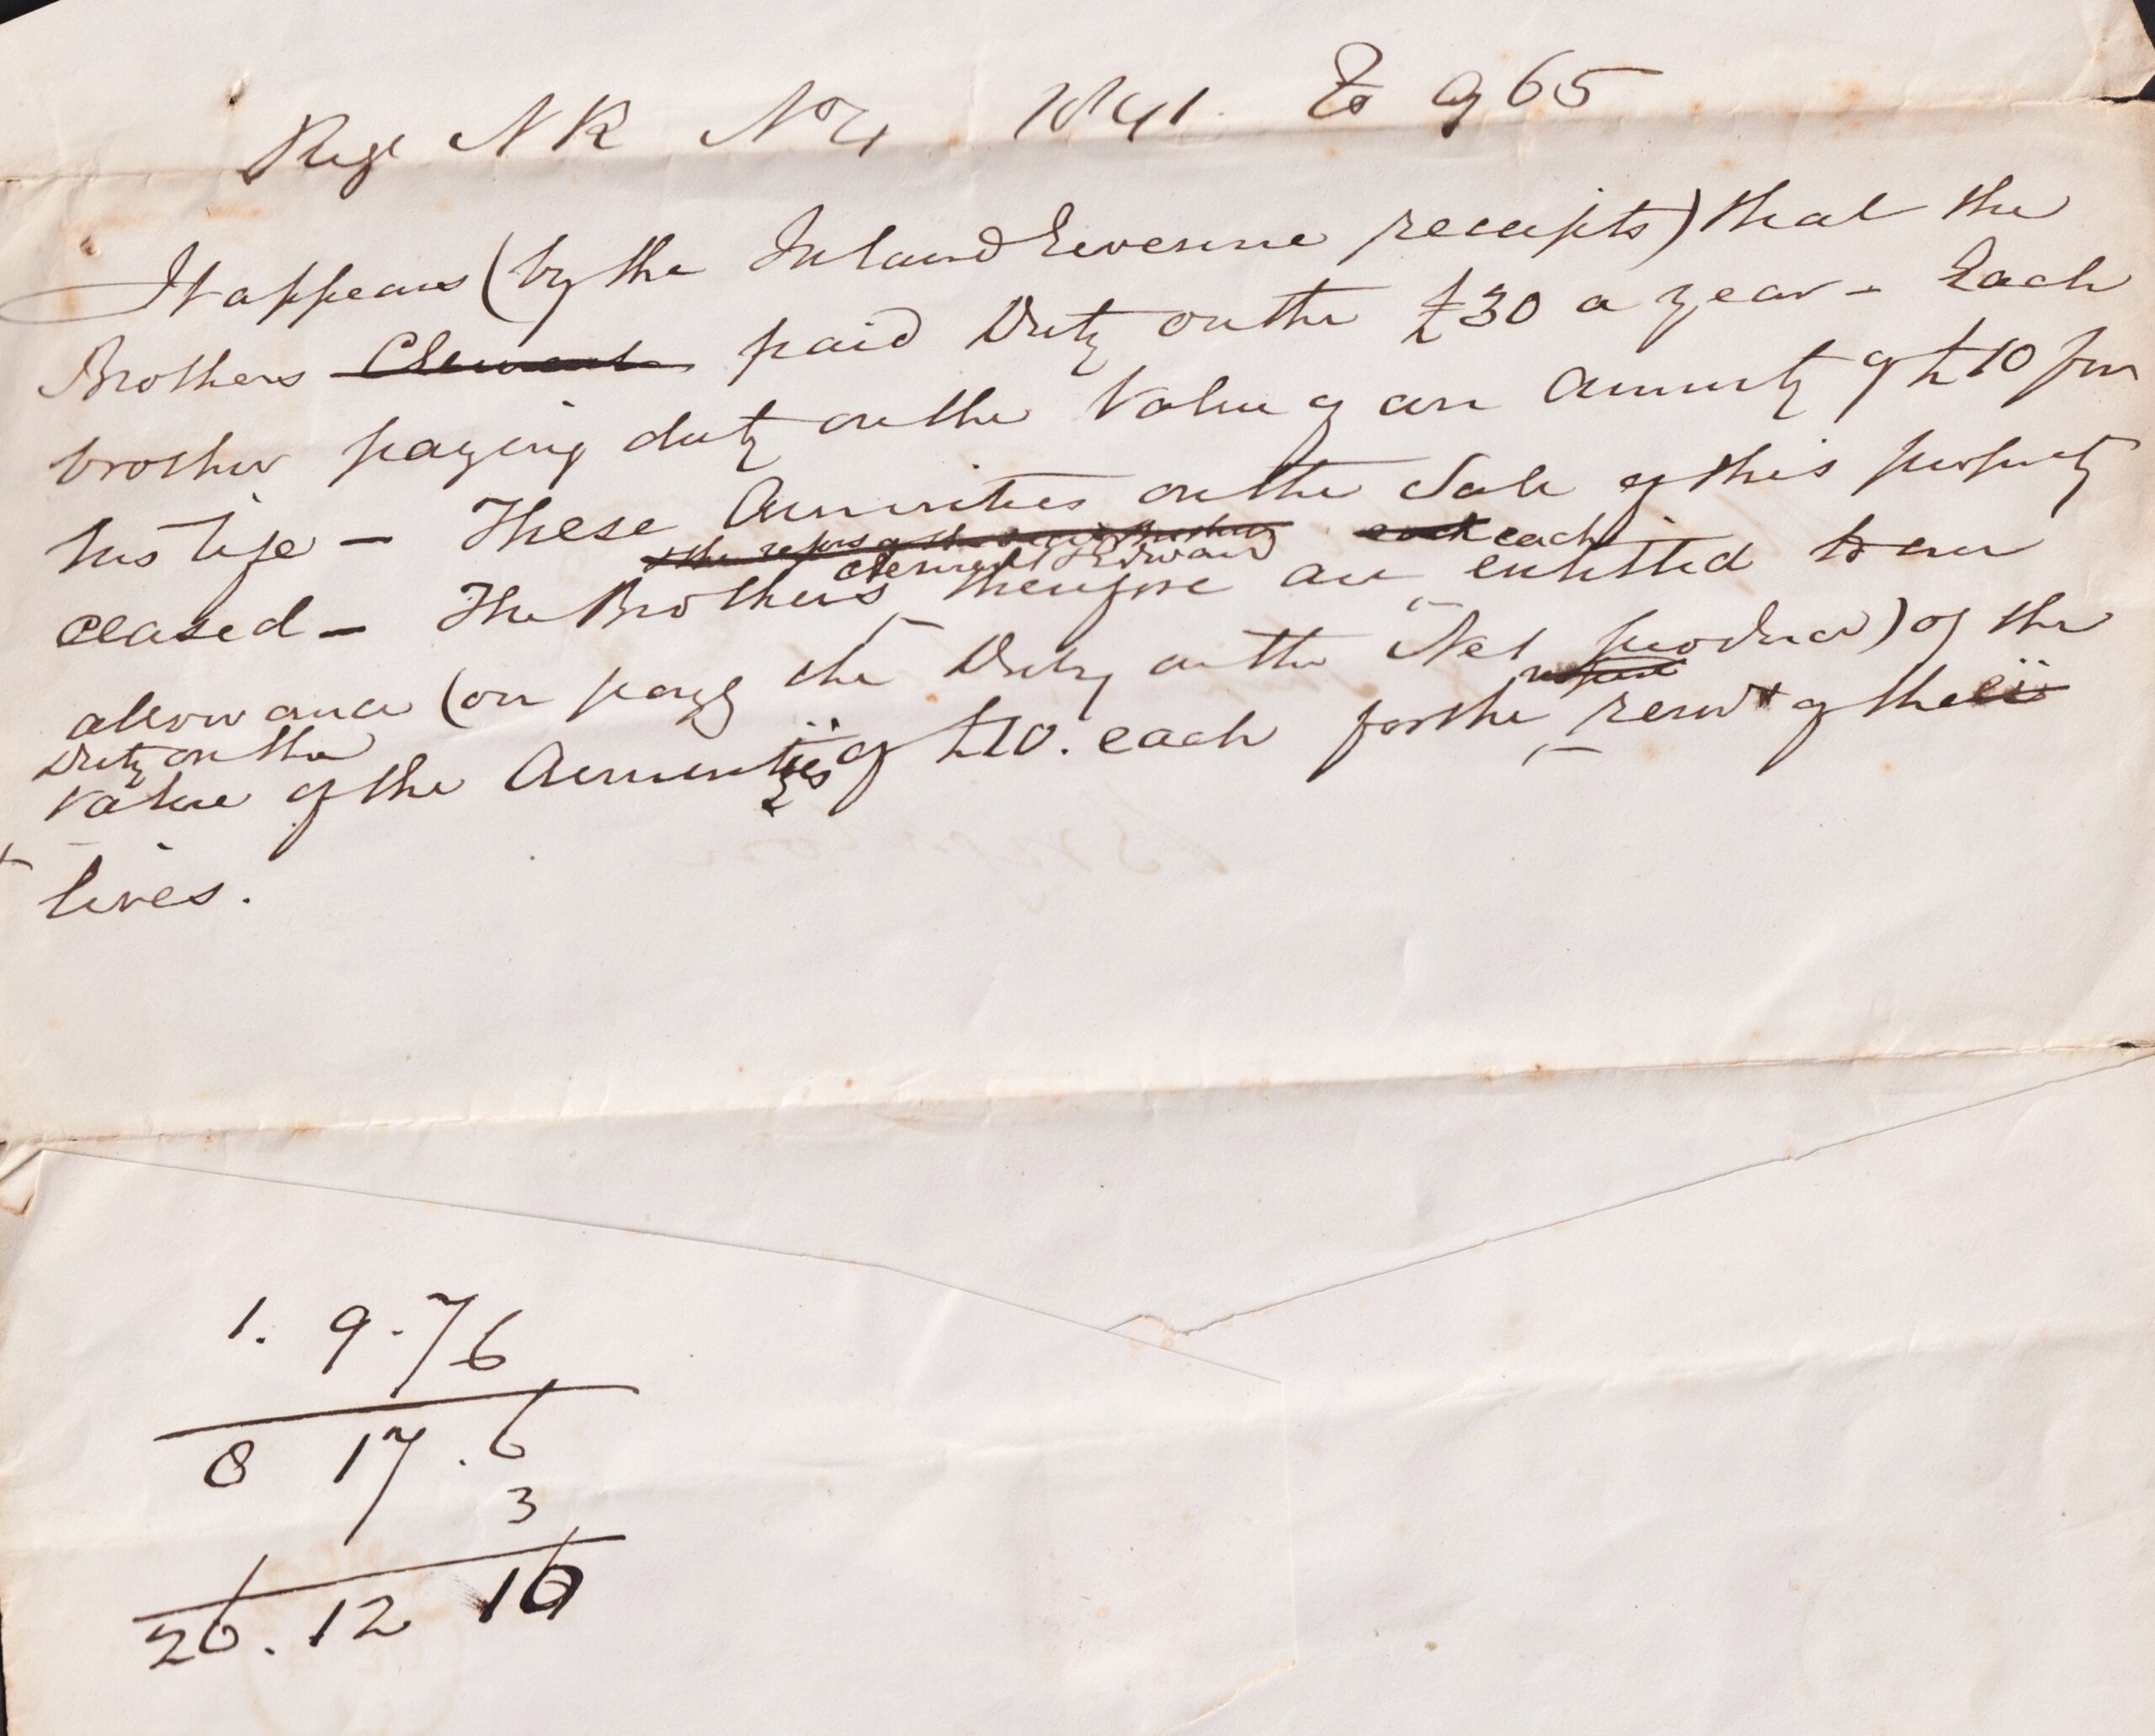 Regr NR No 4 1841. Fo 965
It appears (by the Inland Revenue receipts) that the
Brothers Clement paid Duty on the £30 a year - Each
brother paying duty on the Value of an Annuity of £10 for
his life - These Annuities on the Sale of this property
each each
Clement & Edward
ceased - The Brothers therefore are entitled to an
allowance (on payg the Duty on the Net produce) of the
Duty on the
Value of the Annuities of £10. each for the remr of their
lives.
1. 9. 7 6
8 17. 6
3
26. 12 10